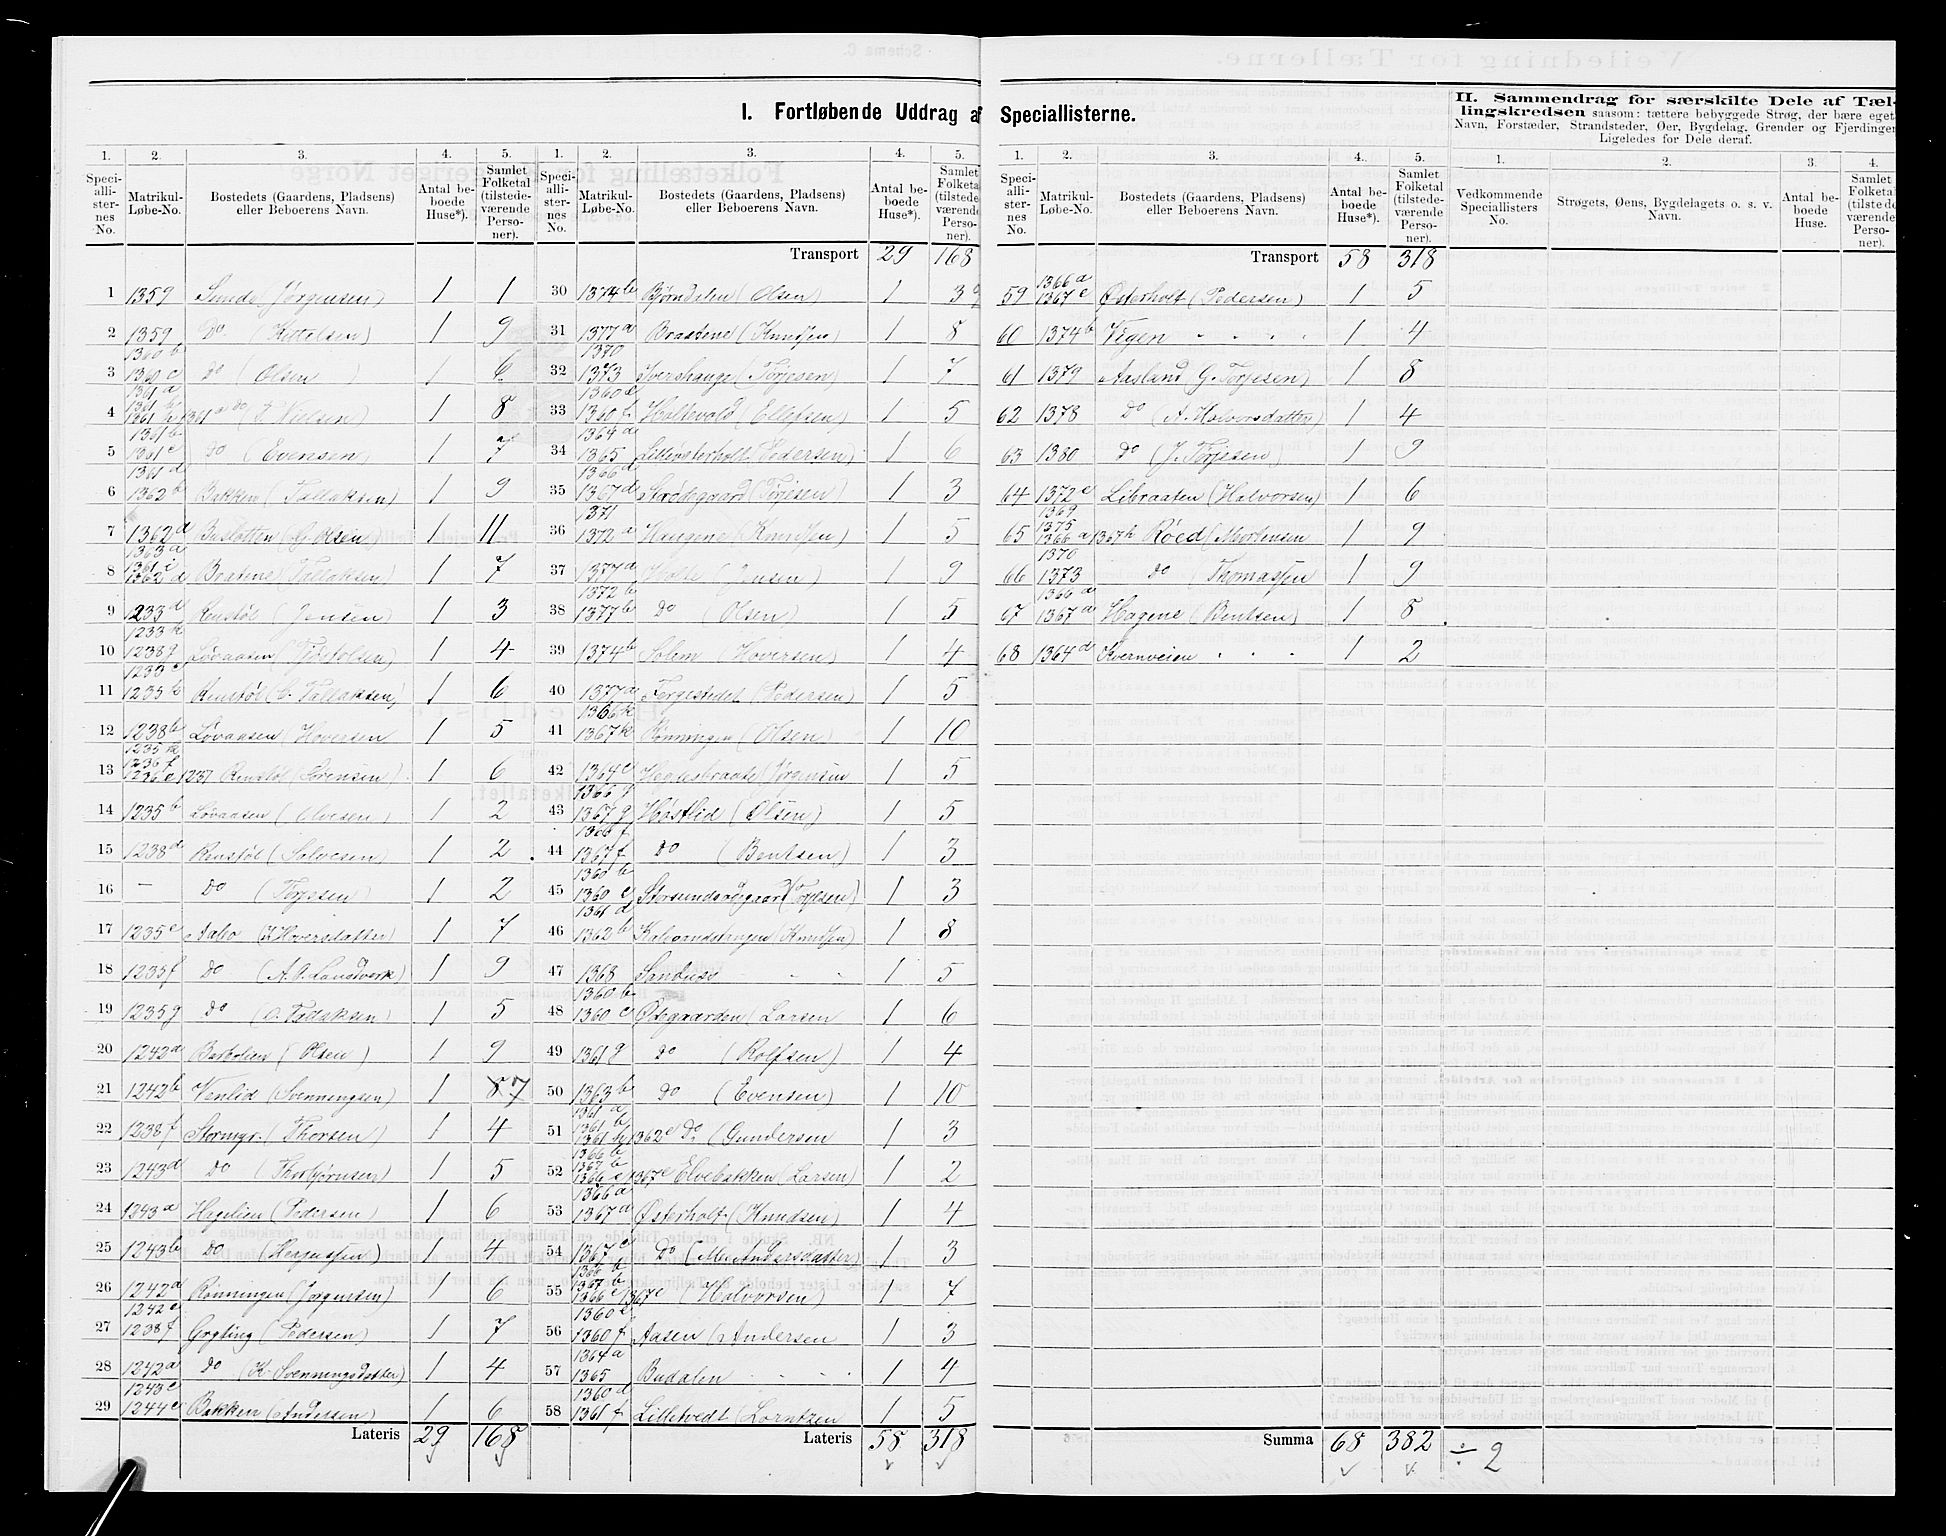 I. Fortløbende Uddrag af Speciallisterne.
II. Sammendrag for særskilte Dele af Tæl-
lingskredsen saasom: tættere bebyggede Strøg, der bære eget
Navn, Forstæder, Strandsteder, Øer, Bygdelag, Grender og Fjerdinger.
Ligeledes for Dele deraf.
1. 2. 3. 4. 5.
Speciallisternes No. Matrikul-Løbe-No. Bostedets (Gaardens, Pladsens) eller Beboerens Navn. Antal beboede Huse*). Samlet Folketal (tilstedeværende Personer).
1 1359 Sunde (Jørgensen) 1 1
2 1359 Do (Kittelsen) 1 9
3 1360 b 1360 c Do (Olsen) 1 6
4 1361 a do (Nielsen) 1 8
5 1361 b 1361 c Do (Evensen) 1 7
6 1361 d 1362 b Bakken (Tallaksen) 1 9
7 1362 d (G. Olsen) 1 11
8 1363 a 1361 i 1362 d Braatene (Tallaksen) 1 7
9 1233 d Renstøl (Jensen) 1 3
10 1233 k 1238 g Løvaasen 1 4
11 1235 h Renstøl (C. Tallaksen) 1 6
12 1238 b Løvaasen (Hoversen 1 5
13 1235 m 1236 f 1236 e 1237 Renstøl (Sørensen) 1 6
14 1235 b Løvaasen 1 2
15 1238 d Renstøl (Solvesen) 1 2
16 — Do (Torjesen) 1 2
17 1235 e Aabo (K. Hoversdatter) 1 7
18 1235 f Do (A. O. Landverk) 1 9
19 1235 g Do (O. Tallaksen) 1 5
20 1242 a (Olsen) 1 9
21 1242 b Venlid (Svenningsen) 1 8 7
22 1238 f Stormyr (Thorsen) 1 4
23 1243 d Do (Thorbjørnsen) 1 5
24 1243 a Hagelien (Pedersen) 1 6
25 1243 b Do (Herjussen) 1 4
26 1242 d Rønningen (Jørgensen) 1 6
27 1242 e 1238 f Grytting (Pedersen) 1 7
28 1242 a Do (K. Svenningsdatter) 1 4
29 1243 c 1244 c Bakken (Andersen) 1 6
Lateris 29 168
Transport 29 168
30 1374 b Bjørndalen (Olsen) 1 3
31 1377 a Braatene (Knudsen) 1 8
32 1370 1373 Ivershauge (Torjesen) 1 7
33 1360 d 1360 f Holtevold (Ellefsen) 1 5
34 1364 a 1365 Lilleøsterholt Pedersen) 1 6
35 1366 d 1367 d (Torjesen 1 3
36 1371 1372 a Haugene (Knudsen) 1 5
37 1377 d (Jensen) 1 9
38 1372 b 1377 b Do (Olsen) 1 5
39 1374 b Solem (Hoversen) 1 4
40 1377 a (Pedersen) 1 5
41 1366 k 1367 k Rønningen (Olsen) 1 10
42 1364 c Heglestraate (Jørgensen 1 5
43 1366 g 1367 g Høstlid (Olsen) 1 5
44 1366 f 1367 f Do (Bentsen) 1 3
45 1360 b 1360 c (Torjesen) 1 3
46 1361 d 1362 b Kalvandstangen (Knudsen) 1 8
47 1368 Sandnæs 1 5
48 1360 b 1360 c Ødegaarden (Larsen 1 6
49 1361 g Do (Rolfsen) 1 4
50 1363 b Do (Evensen) 1 10
51 1361 a 1361 b 1361 h 1362 e Do (Gundersen 1 3
52 1366 b 1367 b 1366 c 1367 c Elvebakken (Larsen) 1 2
53 1366 a 1367 d Østerholt (Knudsen) 1 4
54 1367 c Do (M. Andersdatter) 1 3
55 1366 b 1367 b 1366 c 1367 c (Halvorsen) 1 7
56 1360 e 1360 f Aasen (Andersen 1 3
57 1364 a 1365 Budalen 1 4
58 1360 d 1361 f Lilletvedt (Lorntzen 1 5
Lateris 58 318
Transport 58 318
59 1366 a 1367 c Østerholt (Pedersen) 1 5
60 1374 b Vigen 1 4
61 1379 Aasland (G. Torjesen) 1 8
62 1378 Do (A. Halvorsdatter) 1 4
63 1380 Do (J. Torjesen) 1 9
64 1372 c Libraaten (Halvorsen) 1 6
65 1369 1375 1366 a 1367 h Røed (Mortensen 1 9
66 1370 1373 Do (Thomassen 1 9
67 1366 a 1367 a Hagene (Bentsen) 1 8
68 1364 d Kvernveien 1 2
Summa 68 382 ÷ 2
1. 2. 3. 4.
Vedkommende Speciallisters No. Strøgets, Øens, Bygdelagets o. s. v. Navn. Antal beboede Huse. Samlet Folketal (tilstedeværende Personer).